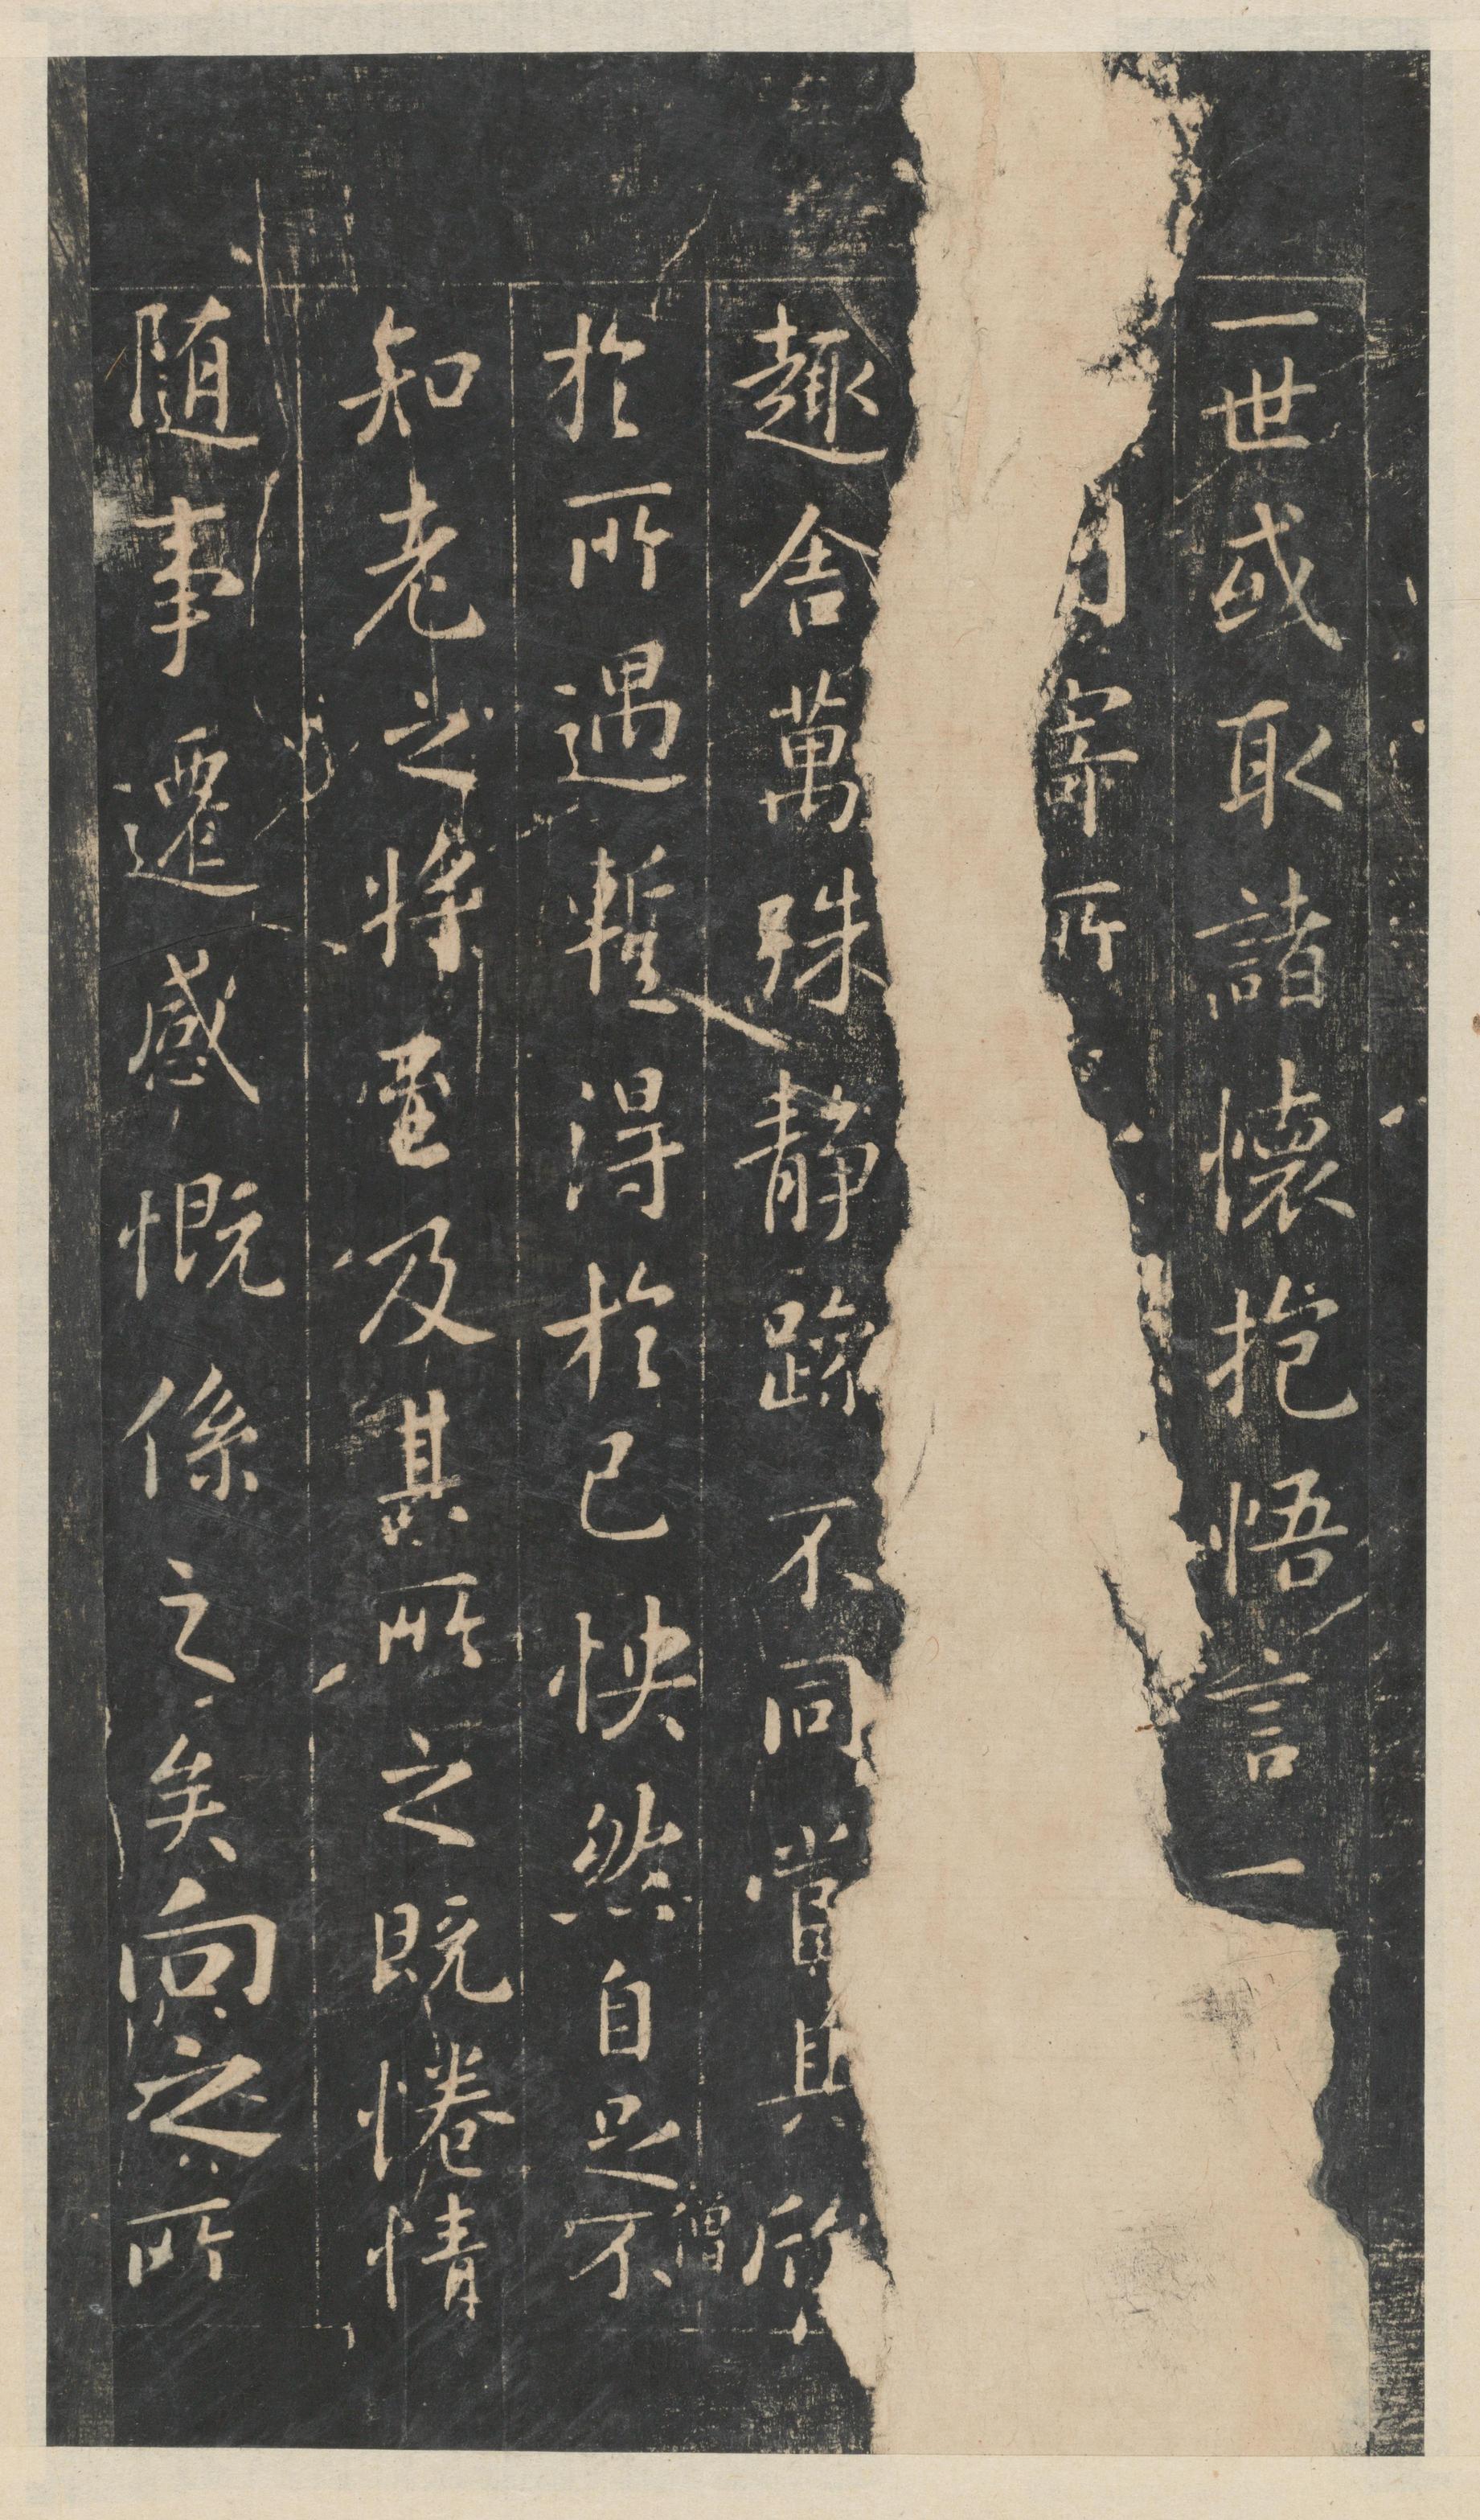 一世或取諸懷抱悟言一
寄所
趣舍萬殊静躁不同當其欣
於所遇暫得於己怏然自足不
僧
知老之將至及其所之既惓情
随事遷感慨係之矣向之所